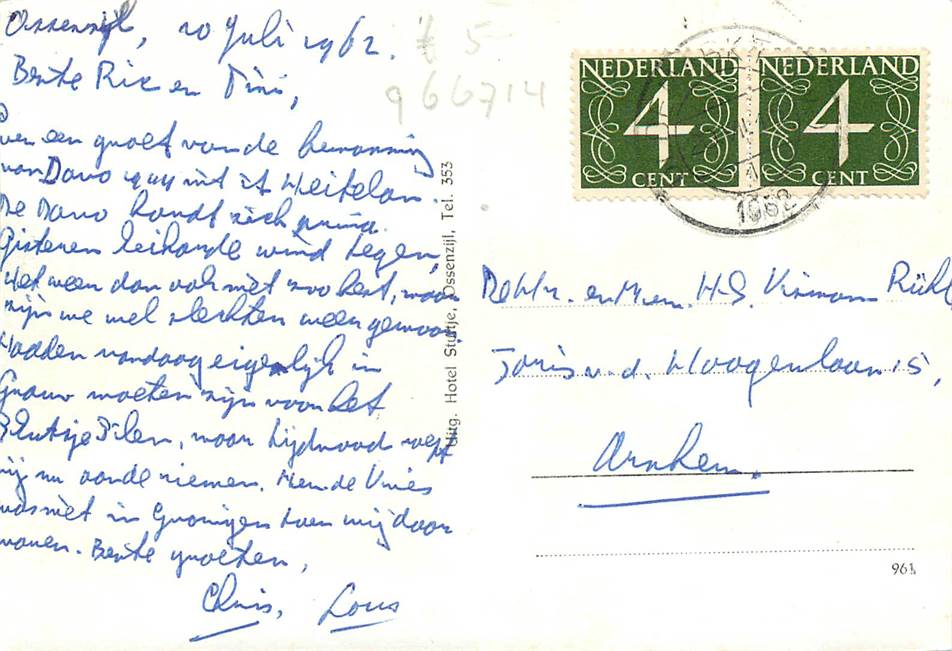 Ossenzijl, 10 Juli 1962.
Beste Rie en Tini,
Even een groet van de bemanning
van Davo
De Davo houdt zich prima.
Gisteren keiharde wind tegen,
Het weer dan ook niet zoo best, maar
zijn we wel slechter weer gewoon.
Hadden vandaag eigenlijk in
Grouw moeten zijn voor het
Skûtsje Silen, maar tijdnood
wij nu aan de riemen. Men de Vries
was niet in Groningen toen wij daar
waren. Beste groeten,
Chris, Lous
£ 5-
966714
Uitg. Hotel Stuitje, Ossenzijl, Tel. 353
NEDERLAND
4
CENT
NEDERLAND
4
CENT
1962
De Hr. en Mevr. H.S. Visman Rühl
Joris v.d. Haagenlaan 15,
Arnhem.
961